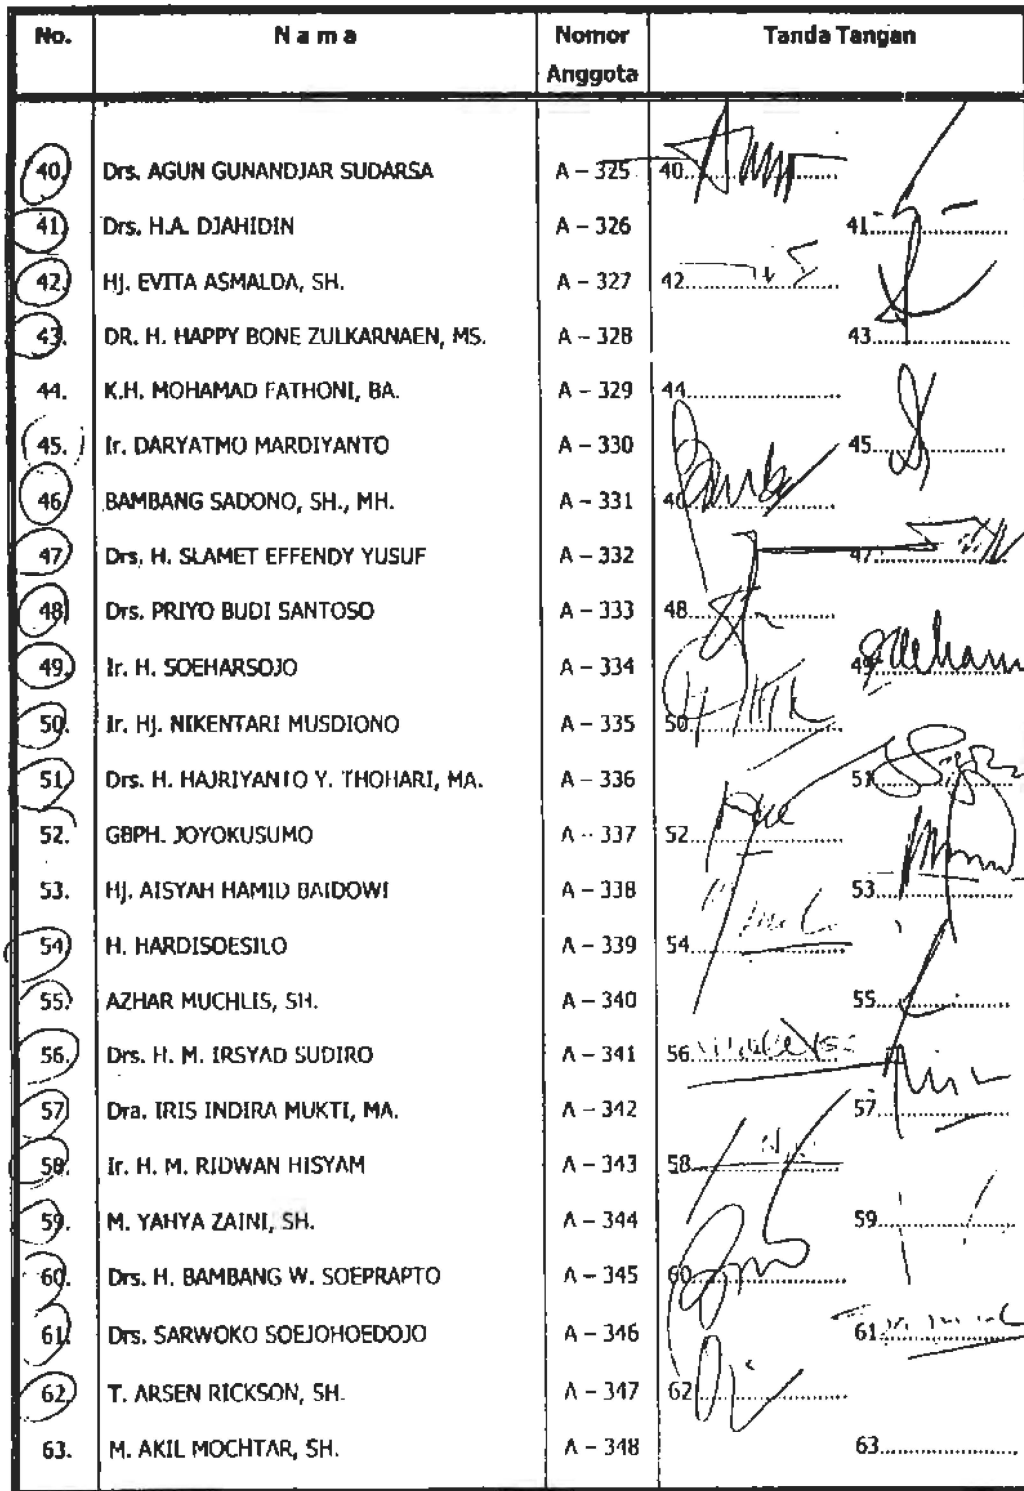 No. Nama Nomor Anggota Tanda Tangan
40. Drs. AGUN GUNANDJAR SUDARSA A – 325 40
41. Drs. H.A. DJAHIDIN A – 326 41
42. Hj. EVITA ASMALDA, SH. A – 327 42
43. DR. H. HAPPY BONE ZULKARNAEN, MS. A – 328 43
44. K.H. MOHAMAD FATHONI, BA. A – 329 44
45. Ir. DARYATMO MARDIYANTO A – 330 45
46. BAMBANG SADONO, SH., MH. A – 331 46
47. Drs. H. SLAMET EFFENDY YUSUF A – 332 47
48. Drs. PRIYO BUDI SANTOSO A – 333 48
49. Ir. H. SOEHARSOJO A – 334 49
50. Ir. Hj. NIKENTARI MUSDIONO A – 335 50
51. Drs. H. HAJRIYANTO Y. THOHARI, MA. A – 336 51
52. GBPH. JOYOKUSUMO A – 337 52
53. Hj. AISYAH HAMID BAIDOWI A – 338 53
54. H. HARDISOESILO A – 339 54
55. AZHAR MUCHLIS, SH. A – 340 55
56. Drs. H. M. IRSYAD SUDIRO A – 341 56
57. Dra. IRIS INDIRA MUKTI, MA. A – 342 57
58. Ir. H. M. RIDWAN HISYAM A – 343 58
59. M. YAHYA ZAINI, SH. A – 344 59
60. Drs. H. BAMBANG W. SOEPRAPTO A – 345 60
61. Drs. SARWOKO SOEJOHOEDOJO A – 346 61
62. T. ARSEN RICKSON, SH. A – 347 62
63. M. AKIL MOCHTAR, SH. A – 348 63